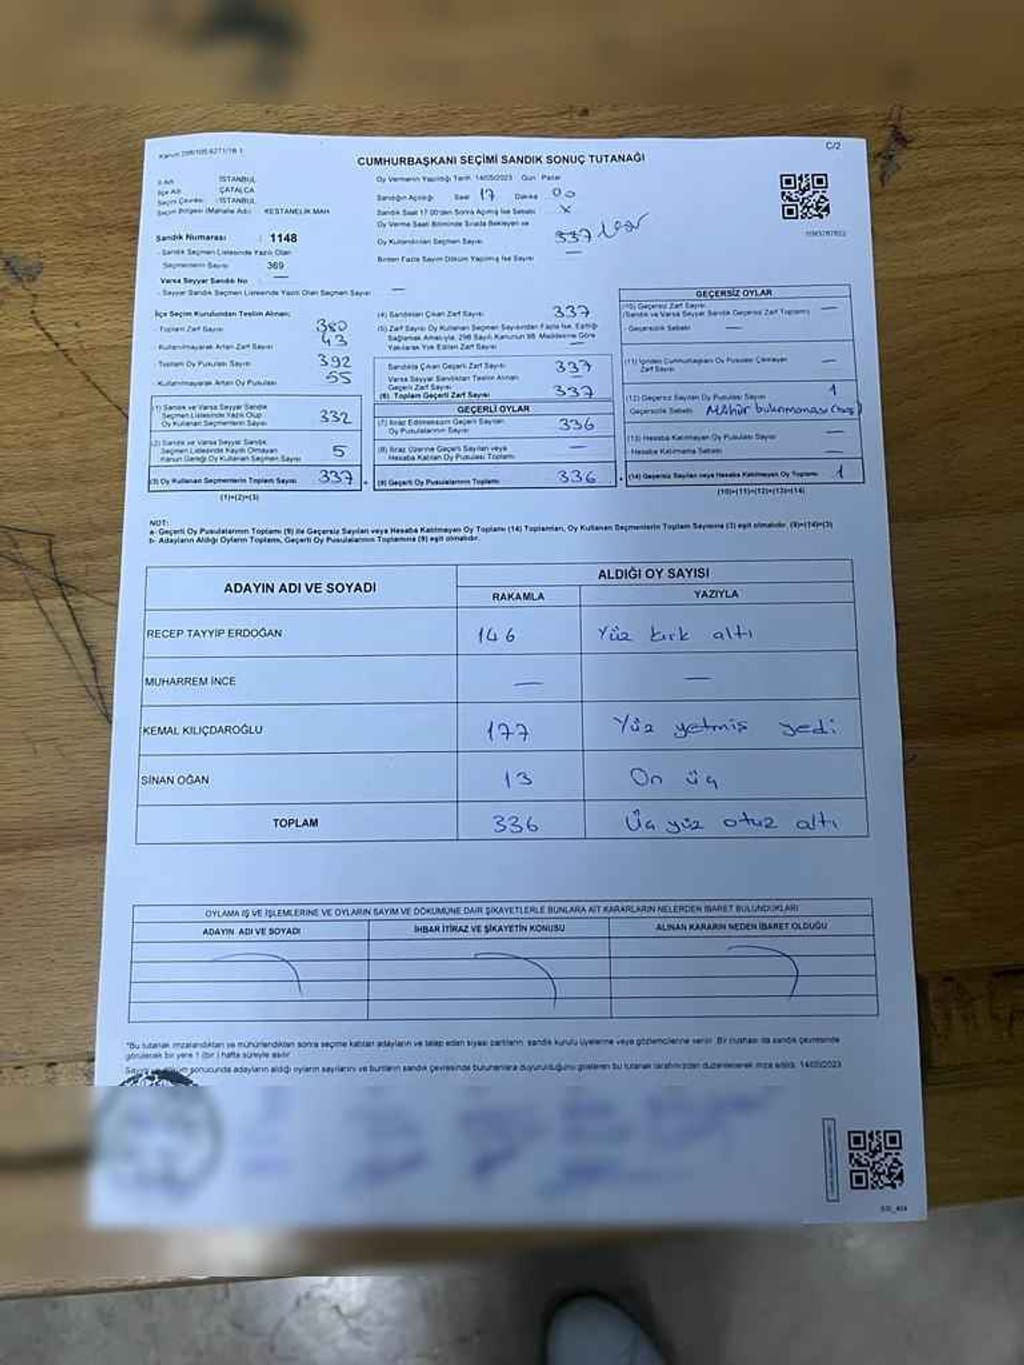 C/2
CUMHURBAŞKANI SEÇİMİ SANDIK SONUÇ TUTANAĞI
İl Adı : İSTANBUL
İlçe Adı : ÇATALCA
Seçim Çevresi : İSTANBUL
Seçim Bölgesi (Mahalle Adı) : KESTANELİK MAH.
Sandık Numarası : 1148
- Sandık Seçmen Listesinde Yazılı Olan
Seçmenlerin Sayısı 369
Varsa Seyyar Sandık No : —
- Seyyar Sandık Seçmen Listesinde Yazılı Olan Seçmen Sayısı —
Oy Vermenin Yapıldığı Tarih: 14/05/2023 Gün: Pazar
Sandığın Açıldığı Saat 17 Dakika 00
Sandık Saat 17.00'den Sonra Açılmış İse Sebebi X
Oy Verme Saati Bitiminde Sırada Bekleyen ve
Oy Kullandırılan Seçmen Sayısı
337
Birden Fazla Sayım Döküm Yapılmış İse Sayısı —
İlçe Seçim Kurulundan Teslim Alınan;
- Toplam Zarf Sayısı 380
- Kullanılmayarak Artan Zarf Sayısı 43
- Toplam Oy Pusulası Sayısı 392
- Kullanılmayarak Artan Oy Pusulası 55
(1) Sandık ve Varsa Seyyar Sandık
Seçmen Listesinde Yazılı Olup
Oy Kullanan Seçmenlerin Sayısı 332
(2) Sandık ve Varsa Seyyar Sandık
Seçmen Listesinde Kayıtlı Olmayan
Kanun Gereği Oy Kullanan Seçmen Sayısı 5
(3) Oy Kullanan Seçmenlerin Toplam Sayısı 337
(1)+(2)=(3)
(4) Sandıktan Çıkan Zarf Sayısı 337
(5) Zarf Sayısı Oy Kullanan Seçmen Sayısından Fazla İse, Eşitliği
Sağlamak Amacıyla, 298 Sayılı Kanunun 98. Maddesine Göre
Yakılarak Yok Edilen Zarf Sayısı —
Sandıkta Çıkan Geçerli Zarf Sayısı 337
Varsa Seyyar Sandıktan Teslim Alınan
Geçerli Zarf Sayısı —
(6) Toplam Geçerli Zarf Sayısı 337
GEÇERLİ OYLAR
(7) İtiraz Edilmeksizin Geçerli Sayılan
Oy Pusulalarının Sayısı 336
(8) İtiraz Üzerine Geçerli Sayılan veya
Hesaba Katılan Oy Pusulası Toplamı —
(9) Geçerli Oy Pusulalarının Toplamı 336
GEÇERSİZ OYLAR
(10) Geçersiz Zarf Sayısı
(Sandık ve Varsa Seyyar Sandık Geçersiz Zarf Toplamı) —
- Geçersizlik Sebebi —
(11) İçinden Cumhurbaşkanı Oy Pusulası Çıkmayan
Zarf Sayısı —
(12) Geçersiz Sayılan Oy Pusulası Sayısı 1
Geçersizlik Sebebi Mühür bulunmaması (boş)
(13) Hesaba Katılmayan Oy Pusulası Sayısı —
Hesaba Katılmama Sebebi —
(14) Geçersiz Sayılan veya Hesaba Katılmayan Oy Toplamı 1
(10)+(11)+(12)+(13)=(14)
NOT:
a- Geçerli Oy Pusulalarının Toplamı (9) ile Geçersiz Sayılan veya Hesaba Katılmayan Oy Toplamı (14) Toplamları, Oy Kullanan Seçmenlerin Toplam Sayısına (3) eşit olmalıdır. (9)+(14)=(3)
b- Adayların Aldığı Oyların Toplamı, Geçerli Oy Pusulalarının Toplamına (9) eşit olmalıdır.
ADAYIN ADI VE SOYADI
ALDIĞI OY SAYISI
RAKAMLA YAZIYLA
RECEP TAYYİP ERDOĞAN 146 Yüz kırk altı
MUHARREM İNCE — —
KEMAL KILIÇDAROĞLU 177 Yüz yetmiş yedi
SİNAN OĞAN 13 On üç
TOPLAM 336 Üç yüz otuz altı
OYLAMA İŞ VE İŞLEMLERİNE VE OYLARIN SAYIM VE DÖKÜMÜNE DAİR ŞİKAYETLERLE BUNLARA AİT KARARLARIN NELERDEN İBARET BULUNDUKLARI
ADAYIN ADI VE SOYADI İHBAR İTİRAZ VE ŞİKAYETİN KONUSU ALINAN KARARIN NEDEN İBARET OLDUĞU
*Bu tutanak imzalandıktan ve mühürlendikten sonra seçime katılan adayların ve talep eden siyasi partilerin, sandık kurulu üyelerine veya gözlemcilerine verilir. Bir nüshası da sandık çevresinde
görülecek bir yere 1 (bir) hafta süreyle asılır.
sonucunda adayların aldığı oyların sayılarını ve bunların sandık çevresinde bulunanlara duyurulduğunu gösteren bu tutanak tarafımızdan düzenlenerek imza edildi. 14/05/2023